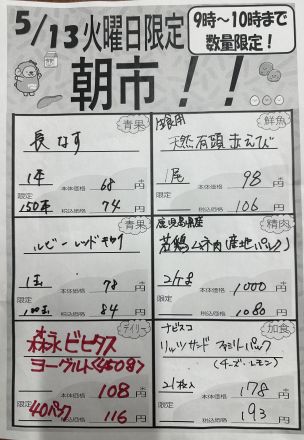 5/13火曜日限定
9時～10時まで
数量限定！
朝市！！
青果
長なす
1本
本体価格 68円
限定
150本
税込価格 74円
鮮魚
生食用
天然有頭赤えび
1尾
本体価格 98円
限定
税込価格 106円
青果
ルビーレッドキウイ
1玉
本体価格 78円
限定
100玉
税込価格 84円
精肉
鹿児島県産
若鶏ムネ肉(産地パック)
2ケ
本体価格 1000円
限定
税込価格 1080円
デイリー
森永ビヒダス
ヨーグルト<450g>
108円
限定
40パック
116円
加食
ナビスコ
リッツサンド ファミリーパック
(チーズ・レモン)
21枚入
本体価格 178円
限定
税込価格 193円